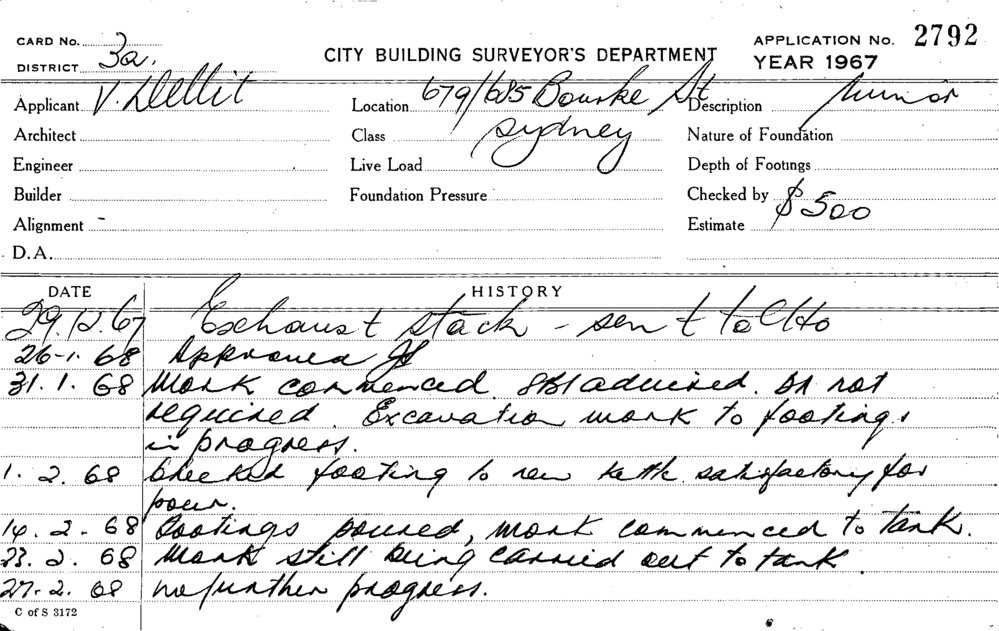 CARD No. 3a.
DISTRICT
CITY BUILDING SURVEYOR'S DEPARTMENT
APPLICATION No. 2792
YEAR 1967
Applicant V. Dellit
Location 679/685 Bourke St
Description Minor
Architect
Class Sydney
Nature of Foundation
Engineer
Live Load
Depth of Footings
Builder
Foundation Pressure
Checked by
Alignment -
Estimate $500
D.A.
DATE HISTORY
29.12.67 Exhaust stack - sent to
26-1.68 Approved
31.1.68 Work commenced. advised. not
required. Excavation work to footings
in progress.
1.2.68 Checked footing to new satisfactory for
pour.
14.2.68 Footings poured, work commenced to tank.
23.2.68 Work still being carried out to tank
27.2.68 no further progress.
C of S 3172